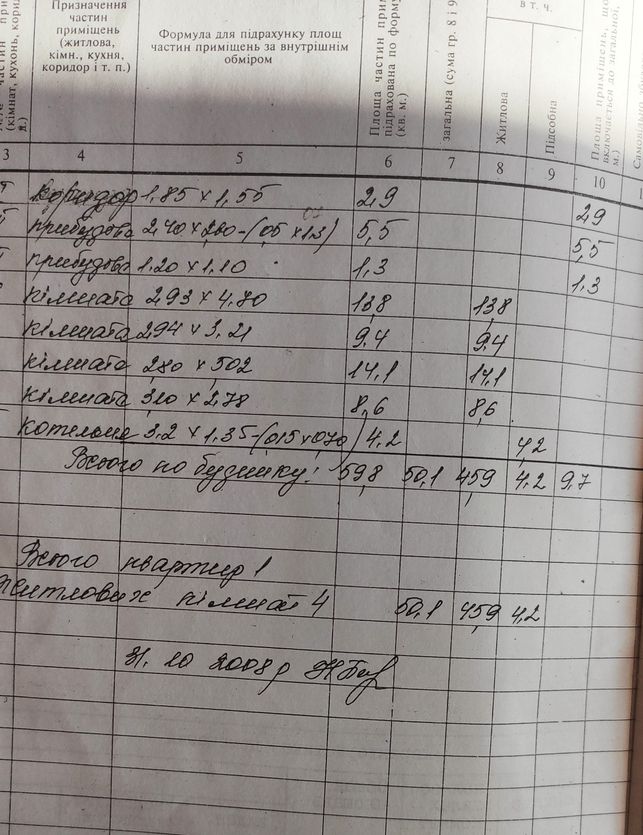 Призначення частин приміщень (житлова, кімн., кухня, коридор і т. п.)
Формула для підрахунку площ частин приміщень за внутрішнім обміром
підрахована по (кв. м.)
загальна (сума гр. 8 і 9
в т. ч.
Житлова
Підсобна
3 4 5 6 7 8 9 10
коридор 1,85 х 1,55 2,9 2,9
прибудова 2,40 х 2,60-(0,5 х 1,3) 5,5 5,5
прибудова 1,20 х 1,10 1,3 1,3
кімната 2,93 х 4,70 13,8 13,8
кімната 2,94 х 3,21 9,4 9,4
кімната 2,80 х 5,02 14,1 14,1
кімната 3,10 х 2,78 8,6 8,6
котельня 3,2 х 1,35-(0,15 х 0,70) 4,2 4,2
Всього по будинку: 59,8 50,1 45,9 4,2 9,7
Всього квартир 1
житлових кімнат 4 50,1 45,9 4,2
10 2008р